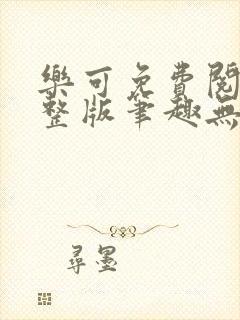 樂可免費閱
整版筆趣無
尋墨